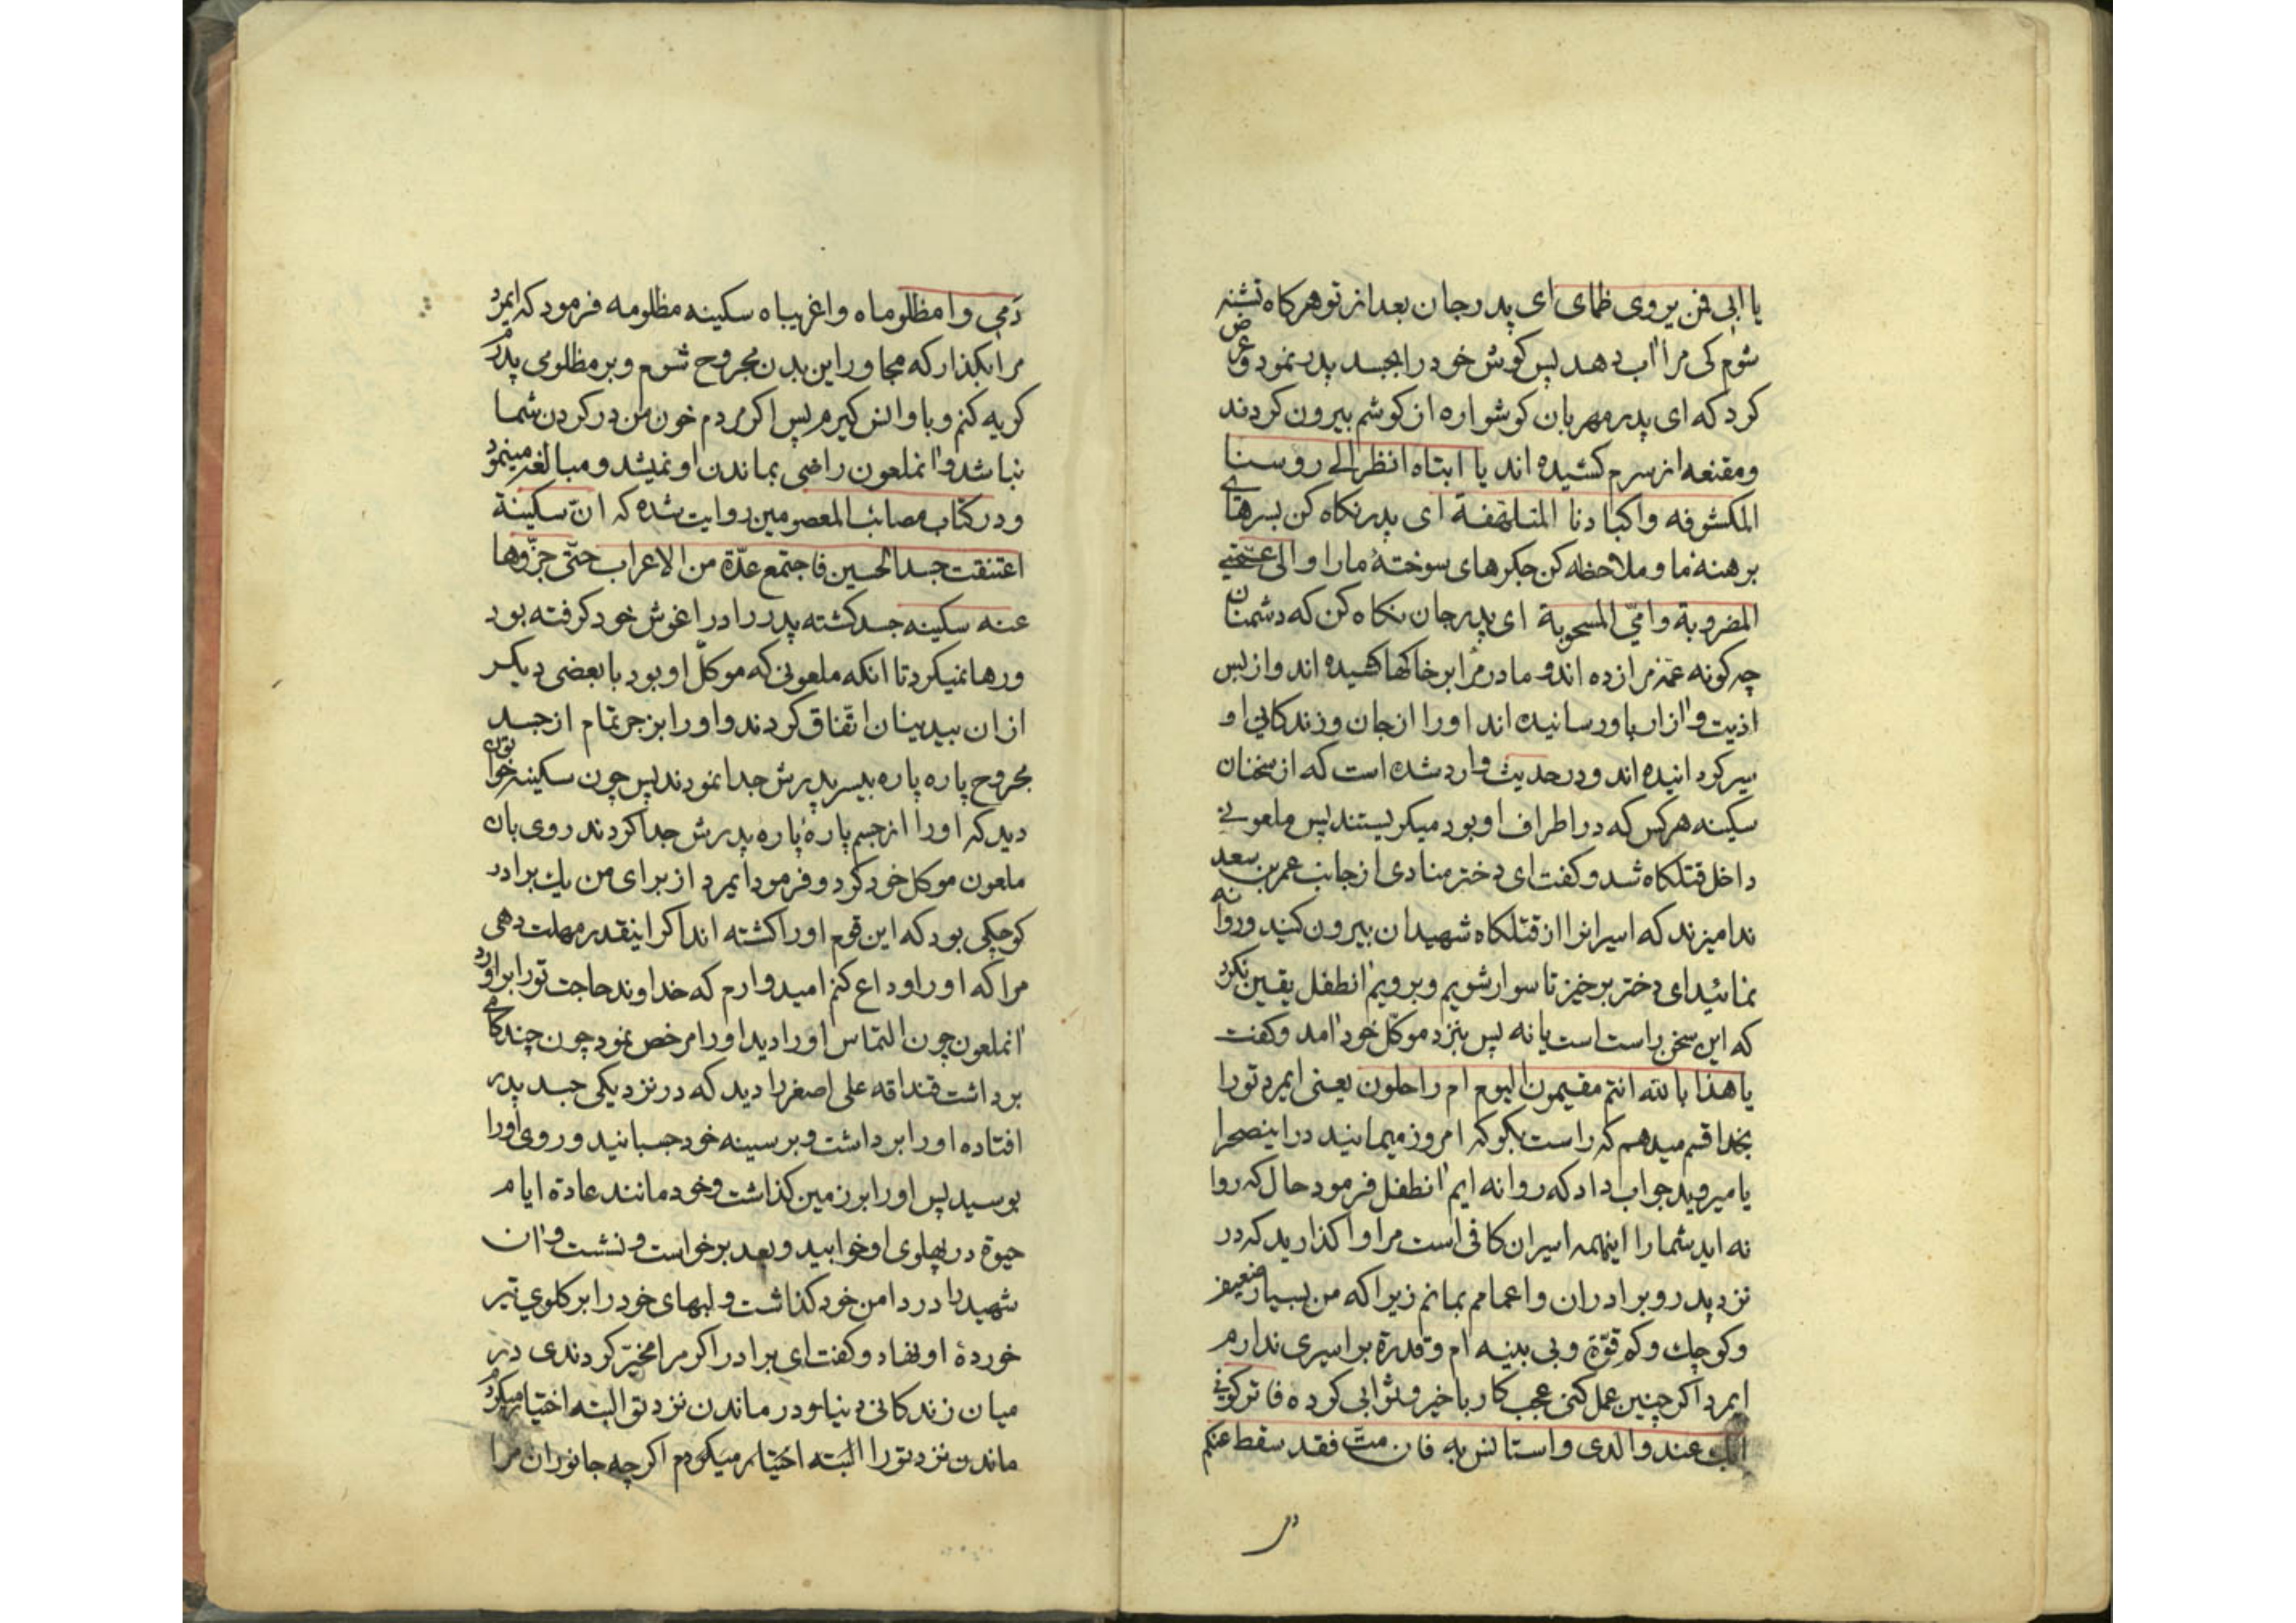 یا ابی فمن یروی ظمای ای پدر جان بعد از تو هرکاه تشنه
شوم کی مرا اب دهد پس کوش خود را بجسد پدر نمود و عرض
کرد که ای پدر مهربان کوشواره از کوشم بیرون کردند
و مقنعه از سرم کشیده اند یا ابتاه انظر الی روسنا
المکشوفه و اکبادنا المتلهفة ای پدر نکاه کن بسرهای
برهنه ما و ملاحظه کن جکرهای سوختهٔ ما را و الی عمتی
المضروبة و امّی المسحوبة ای پدر جان نکاه کن که دشمنان
چه کونه عمّه مرا زده اند و مادر مرا بر خاکها کشیده اند و از بس
اذیت و ازار باو رسانیده اند او را از جان و زندکانی او
سیر کردانیده اند و در حدیث وارد شده است که از سخنان
سکینه هر کس که در اطراف او بود میکریستند پس ملعونی
داخل قتلکاه شد و کفت ای دختر منادی از جانب عمر بن سعد
ندا میزند که اسیرانرا از قتلکاه شهیدان بیرون کنید و روانه
نمائید ای دختر برخیز تا سوار شویم و برویم انطفل یقین نکرد
که این سخن راست است یا نه پس بنزد موکّل خود امد و کفت
یا هذا بالله انتم مقیمون الیوم ام راحلون یعنی ایمرد تو را
بخدا قسم میدهم که راست بکو که امروز میمانید در اینصحرا
یا میروید جواب داد که روانه ایم انطفل فرمود حال که روا
نه اید شما را اینهمه اسیران کافی است مرا واکذارید که در
نزد پدر و برادران و اعمامم بمانم زیرا که من بسیار ضعیف
و کوچک و کم قوّة و بی بنیه ام و قدرة بر اسیری ندارم
ایمرد اکر چنین عمل کنی عجب کار با خیر و ثوابی کرده فاترکونی
ابک عند والدی و استانس به فان متّ فقد سقط عنکم
دمی وا مظلوماه وا غریباه سکینه مظلومه فرمود که ایمرد
مرا بکذار که مجاور این بدن مجروح شوم و بر مظلومی پدرم
کریه کنم و با او انس کیرم پس اکر مردم خون من در کردن شما
نباشد و انملعون راضی بماندن او نمیشد و مبالغه مینمود
و در کتاب مصائب المعصومین روایت شده که انّ سکینة
اعتنقت جسد الحسین فاجتمع عدّة من الاعراب حتّی جرّوها
عنه سکینه جسد کشته پدر را در اغوش خود کرفته بود
و رها نمیکرد تا انکه ملعونی که موکّل او بود با بعضی دیکر
از ان بیدینان اتّفاق کردند و او را بزجر تمام از جسد
مجروح پاره پاره بیسر پدرش جدا نمودند پس چون سکینه خواتون
دید که او را از جسم پاره پاره پدرش جدا کردند روی بان
ملعون موکل خود کرد و فرمود ایمرد از برای من یک برادر
کوچکی بود که این قوم او را کشته اند اکر اینقدر مهلت دهی
مرا که او را وداع کنم امیدوارم که خداوند حاجت تو را براورد
انملعون چون التماس او را دید او را مرخص نمود چون چند کامی
برداشت قنداقه علی اصغر را دید که در نزدیکی جسد پدر
افتاده او را برداشت و بر سینه خود چسبانید و روی او را
بوسید پس او را بر زمین کذاشت و خود مانند عادة ایام
حیوة در پهلوی او خوابید و بعد برخواست و نشست و ان
شهید را در دامن خود کذاشت و لبهای خود را بر کلوی تیر
خوردهٔ او نهاد و کفت ای برادر اکر مرا مخیّر کردندی در
میان زندکانی دنیا و در ماندن نزد تو البته اختیار میکردم
ماندن نزد تو را البته اختیار میکردم اکر چه جانوران مرا
در